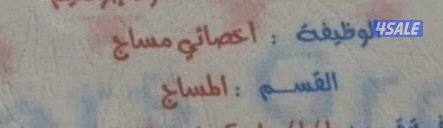 الوظيفة : اخصائي مساج
4SALE
القسم : المساج